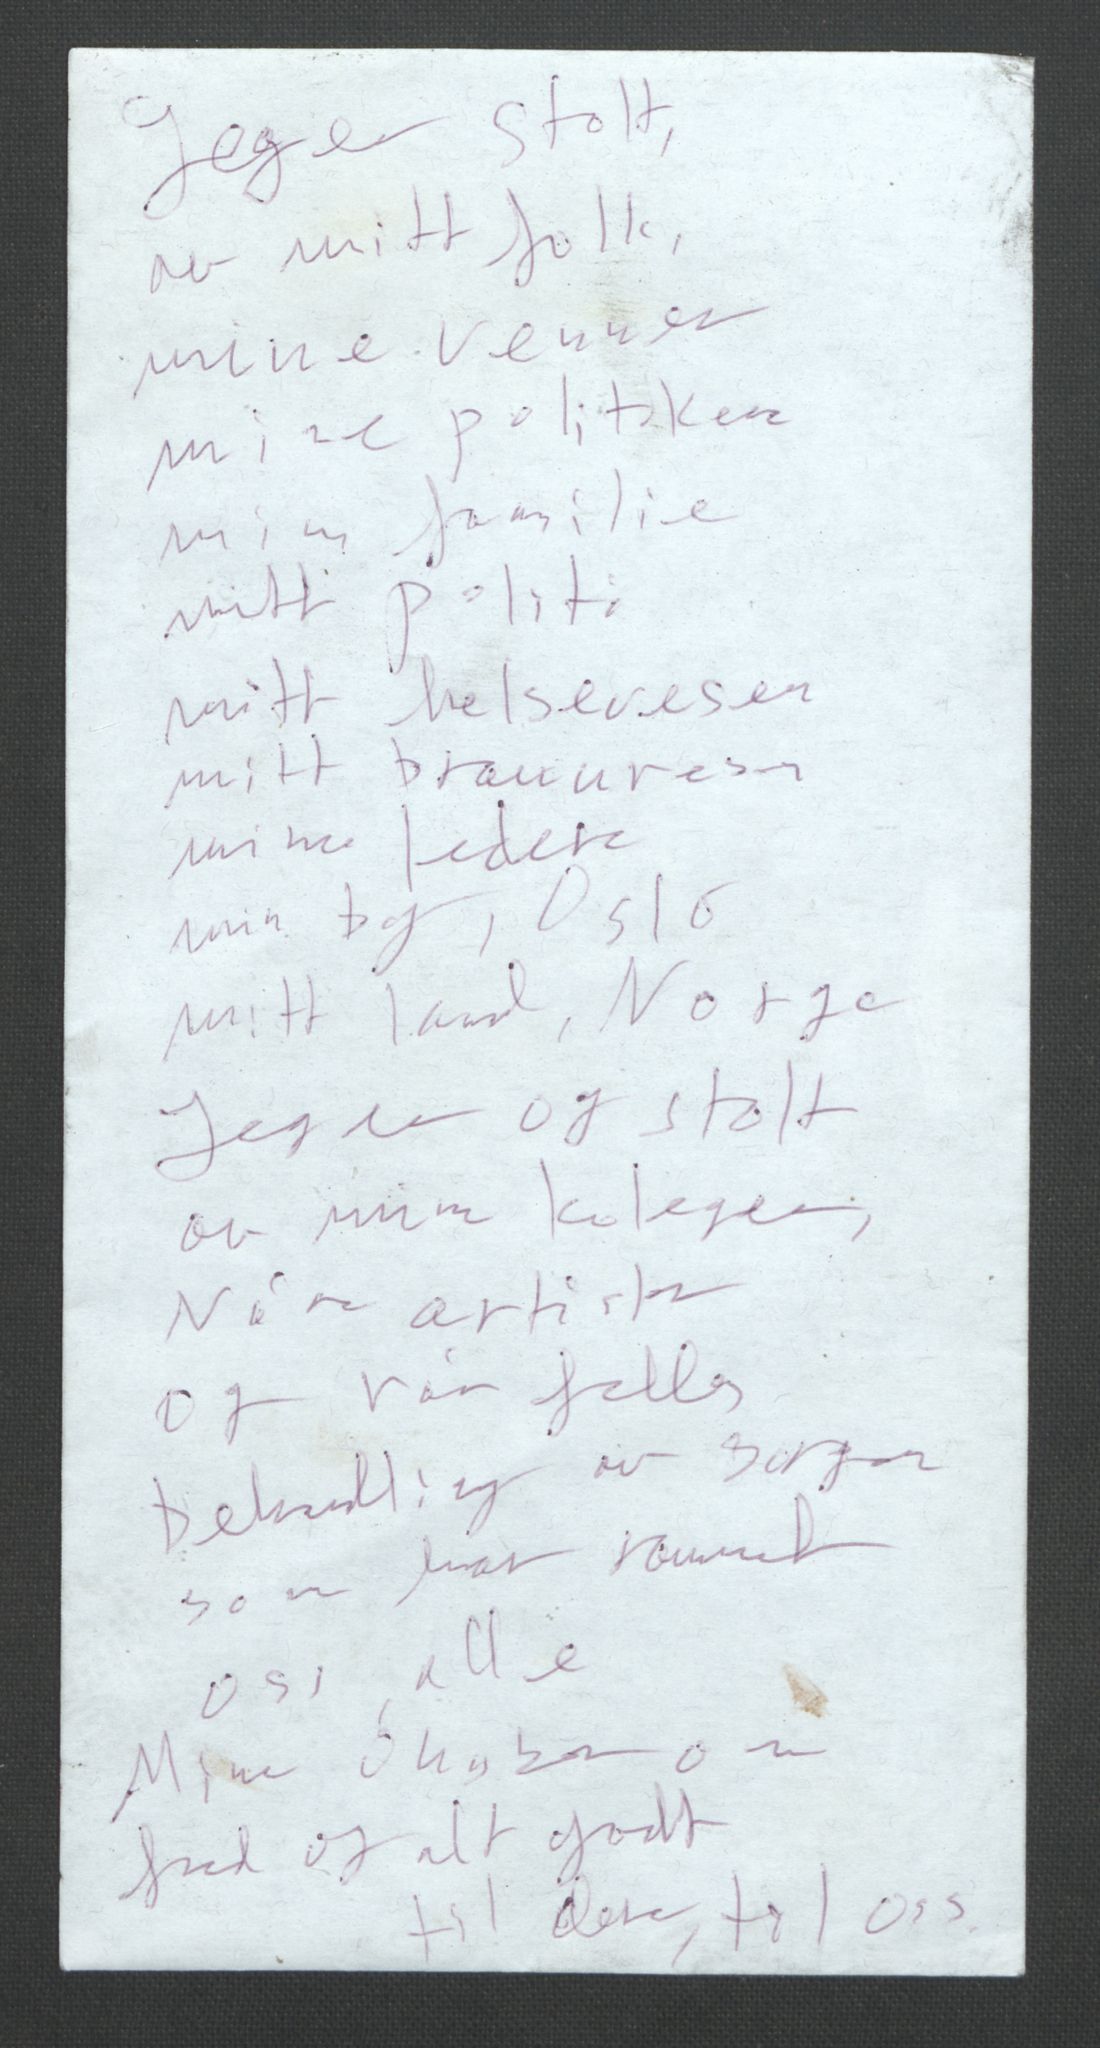 Jeg er stolt,
av mitt folk,
mine venner
mine politiker
min familie
mitt politi
mitt helsevesen
mitt brannvesen
mine ledere
min by, Oslo
mitt land, Norge
Jeg er og stolt
av mine kolleger,
Våre artister
og vår felles
behandling av sorgen
som har rammet
oss, alle
Mine ønsker om
fred og alt godt
til dere, til oss.